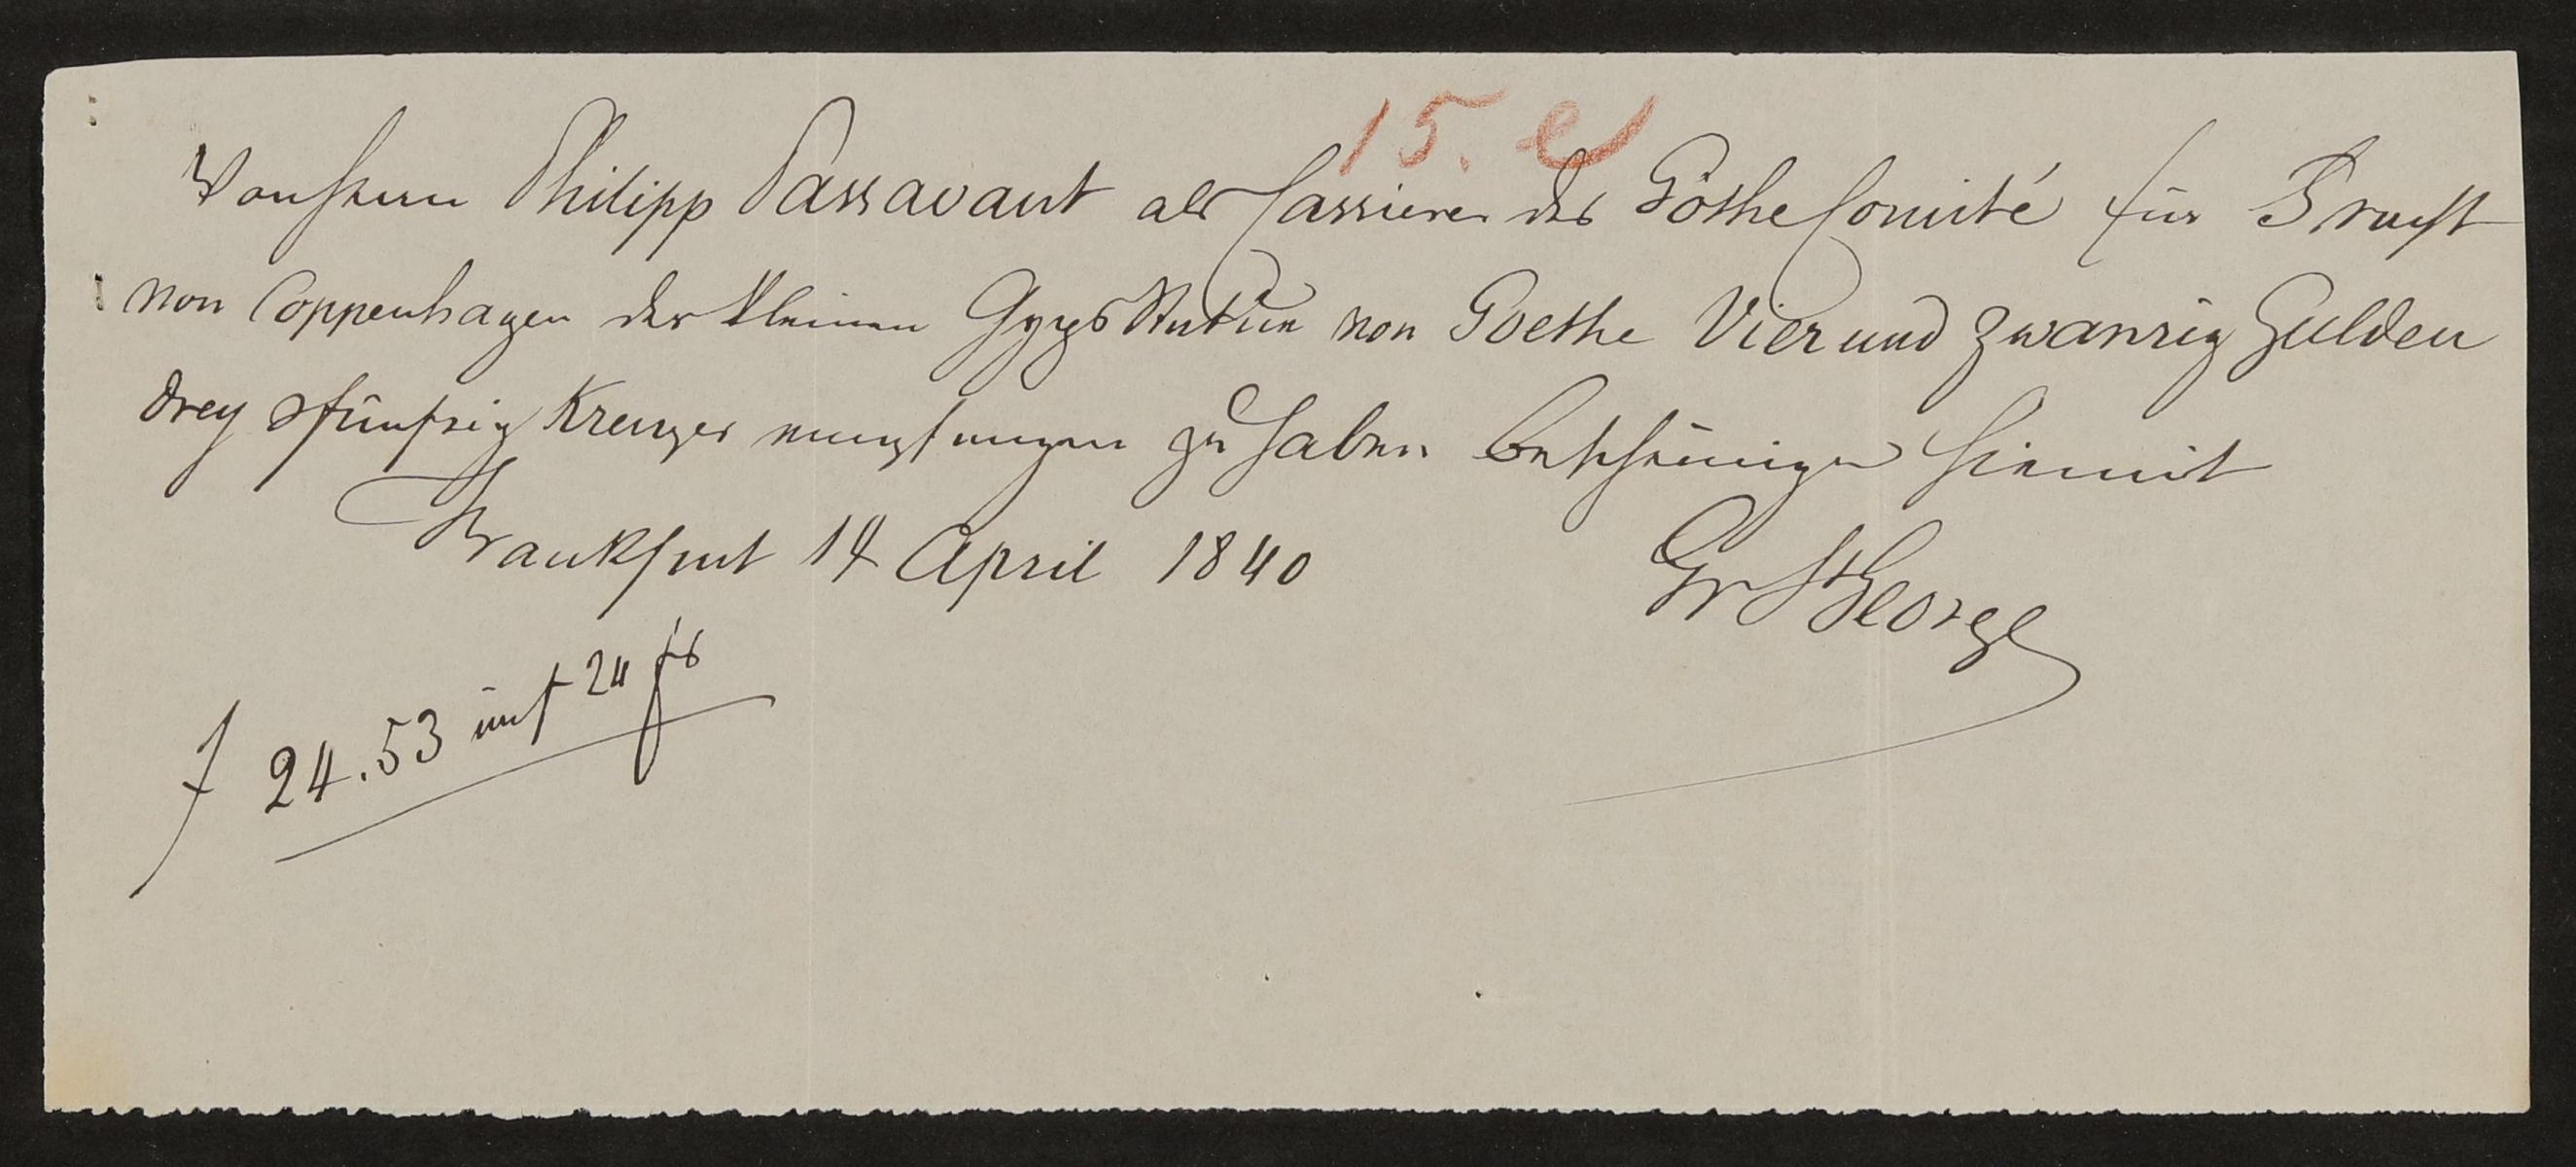 15. e
Von Herrn Philipp Passavant als Cassirer des Göthe Comité für Fracht
von Coppenhagen der kleinen Gyps Statue von Goethe Vier und zwanzig Gulden
drey & fünfzig Kreuzer empfangen zu haben bescheinige hiemit
Frankfurt 14 April 1840
Gr St George
f 24.53 im f 24 fs